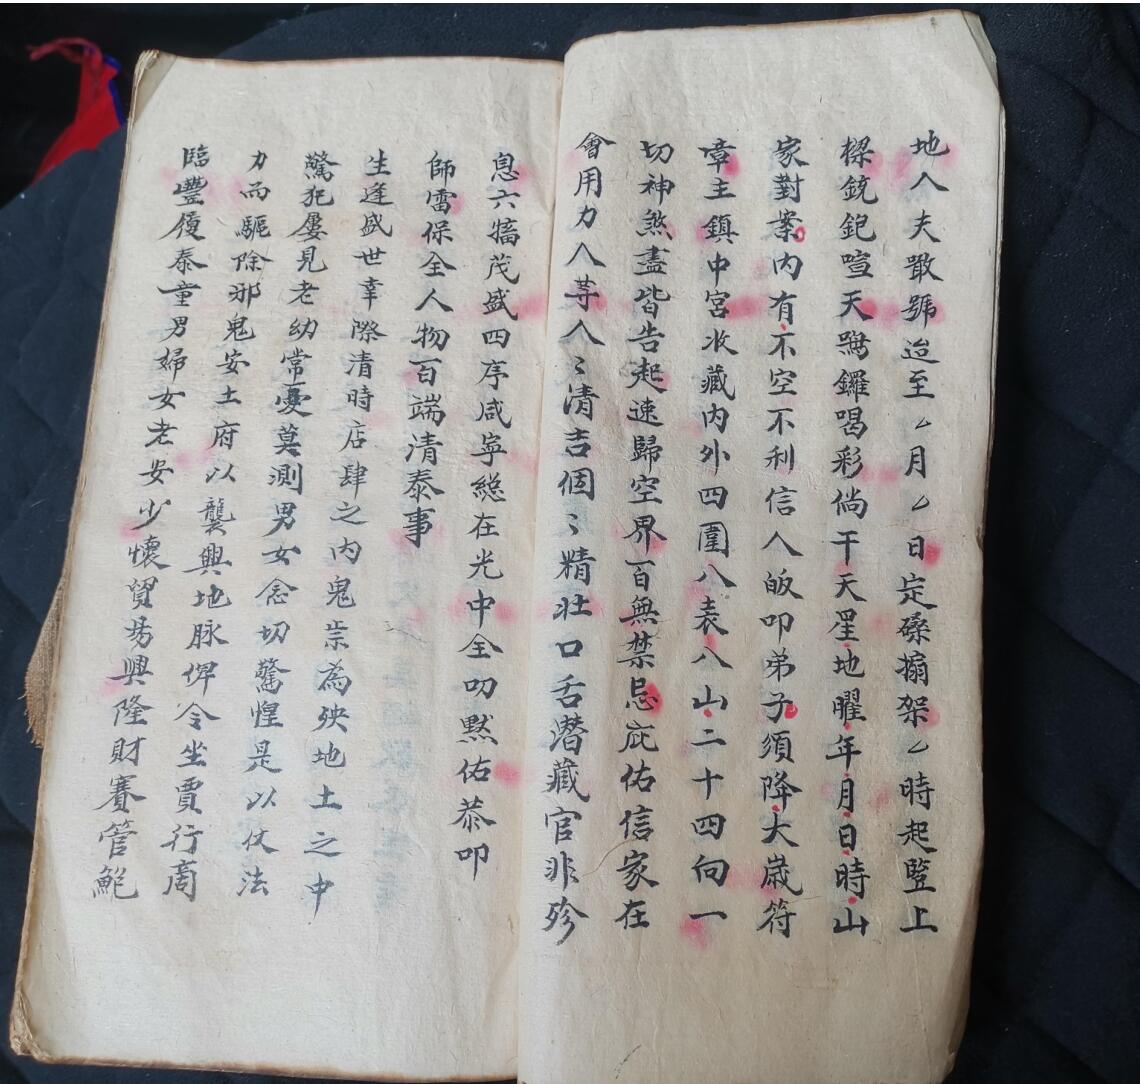 地人夫敢號迨至ㄥ月ㄥ日定磉搧架ㄥ時起豎上
樑銃鈀喧天鑼喝彩倘干天星地曜年月日時山
家對案内有不空不利信人皈叩弟子須降大歲符
章主鎮中宮收藏内外四圍八表八山二十四向一
切神煞盡皆告起速歸空界百無禁忌庇佑信家在
會用力人等人〻清吉個〻精壯口舌潛藏官非殄
息六犒茂盛四序咸寧總在光中全叨黙佑恭叩
師雷保全人物百端清泰事
生逢盛世幸際清時店肆之内鬼祟為殃地土之中
驚犯屢見老幼常憂莫測男女念切驚惶是以仗法
力而驅除邪鬼安土府以龔興地脉俾令坐賈行商
臨豐履泰童男婦女老安少懷貿易興隆財賽管鮑